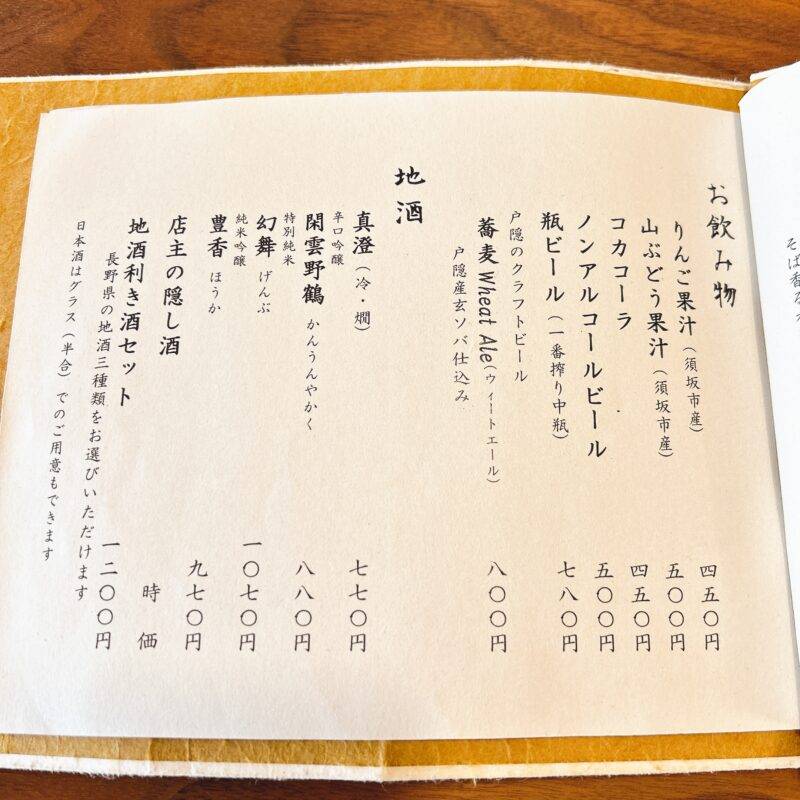 お飲み物
りんご果汁（須坂市産） 四五〇円
山ぶどう果汁（須坂市産） 五〇〇円
コカコーラ 四五〇円
ノンアルコールビール 五〇〇円
瓶ビール（一番搾り中瓶） 七八〇円
戸隠のクラフトビール
蕎麦Wheat Ale（ウィートエール） 八〇〇円
戸隠産玄ソバ仕込み
地酒
真澄（冷・燗） 七七〇円
辛口吟醸
閑雲野鶴 かんうんやかく 八八〇円
特別純米
幻舞 げんぶ 一〇七〇円
純米吟醸
豊香 ほうか 九七〇円
店主の隠し酒 時価
地酒利き酒セット 一二〇〇円
長野県の地酒三種類をお選びいただけます
日本酒はグラス（半合）でのご用意もできます